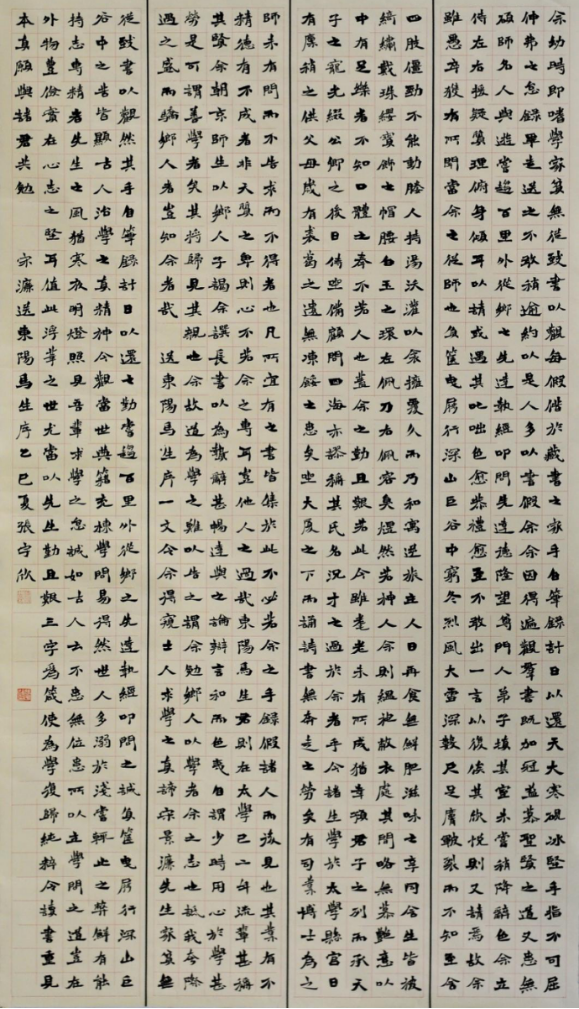 余幼時即嗜學家貧無從致書以觀每假借於藏書之家手自筆錄計日以還天大寒硯冰堅手指不可屈
伸弗之怠錄畢走送之不敢稍逾約以是人多以書假余余因得遍觀羣書既加冠益慕聖賢之道又患無
碩師名人與遊嘗趨百里外從鄉之先達執經叩問先達德隆望尊門人弟子填其室未嘗稍降辭色余立
侍左右援疑質理俯身傾耳以請或遇其叱咄色愈恭禮愈至不敢出一言以復俟其欣悅則又請焉故余
雖愚卒獲有所聞當余之從師也負篋曳屣行深山巨谷中窮冬烈風大雪深數尺足膚皸裂而不知至舍
四肢僵勁不能動媵人持湯沃灌以衾擁覆久而乃和寓逆旅主人日再食無鮮肥滋味之享同舍生皆被
綺繡戴珠纓寶飾之帽腰白玉之環左佩刀右佩容臭燁然若神人余則縕袍敝衣處其間略無慕艷意以
中有足樂者不知口體之奉不若人也蓋余之勤且艱若此今雖耄老未有所成猶幸預君子之列而承天
子之寵光綴公卿之後日侍坐備顧問四海亦謬稱其氏名況才之過於余者乎今諸生學於太學縣官日
有廩稍之供父母歲有裘葛之遺無凍餒之患矣坐大廈之下而誦詩書無奔走之勞矣有司業博士為之
師未有問而不告求而不得者也凡所宜有之書皆集於此不必若余之手錄假諸人而後見也其業有不
精德有不成者非天質之卑則心不若余之專耳豈他人之過哉東陽馬生君則在太學已二年流輩甚稱
其賢余朝京師生以鄉人子謁余譔長書以為贄辭甚暢達與之論辯言和而色夷自謂少時用心於學甚
勞是可謂善學者矣其將歸見其親也余故道為學之難以告之謂余勉鄉人以學者余之志也詆我夸際
遇之盛而驕鄉人者豈知余者哉 送東陽馬生序一文令余得窺士人求學之真諦宋景濂先生家貧無
從致書以觀然其手自筆錄計日以還之勤嘗趨百里外從鄉之先達執經叩問之誠負篋曳屣行深山巨
谷中之苦皆顯古人治學之真精神今觀當世典籍充棟學問易得然世人多溺於淺嘗輒止之弊鮮有能
持志專精者先生之風猶寒夜明燈照見吾輩求學之怠誠如古人云不患無位患所以立學問之道豈在
外物豐儉實在心志之堅耳值此浮華之世尤當以先生勤且艱三字為箴使為學復歸純粹令讀書重見
本真願與諸君共勉 宋濂送東陽馬生序乙巳夏張守欣